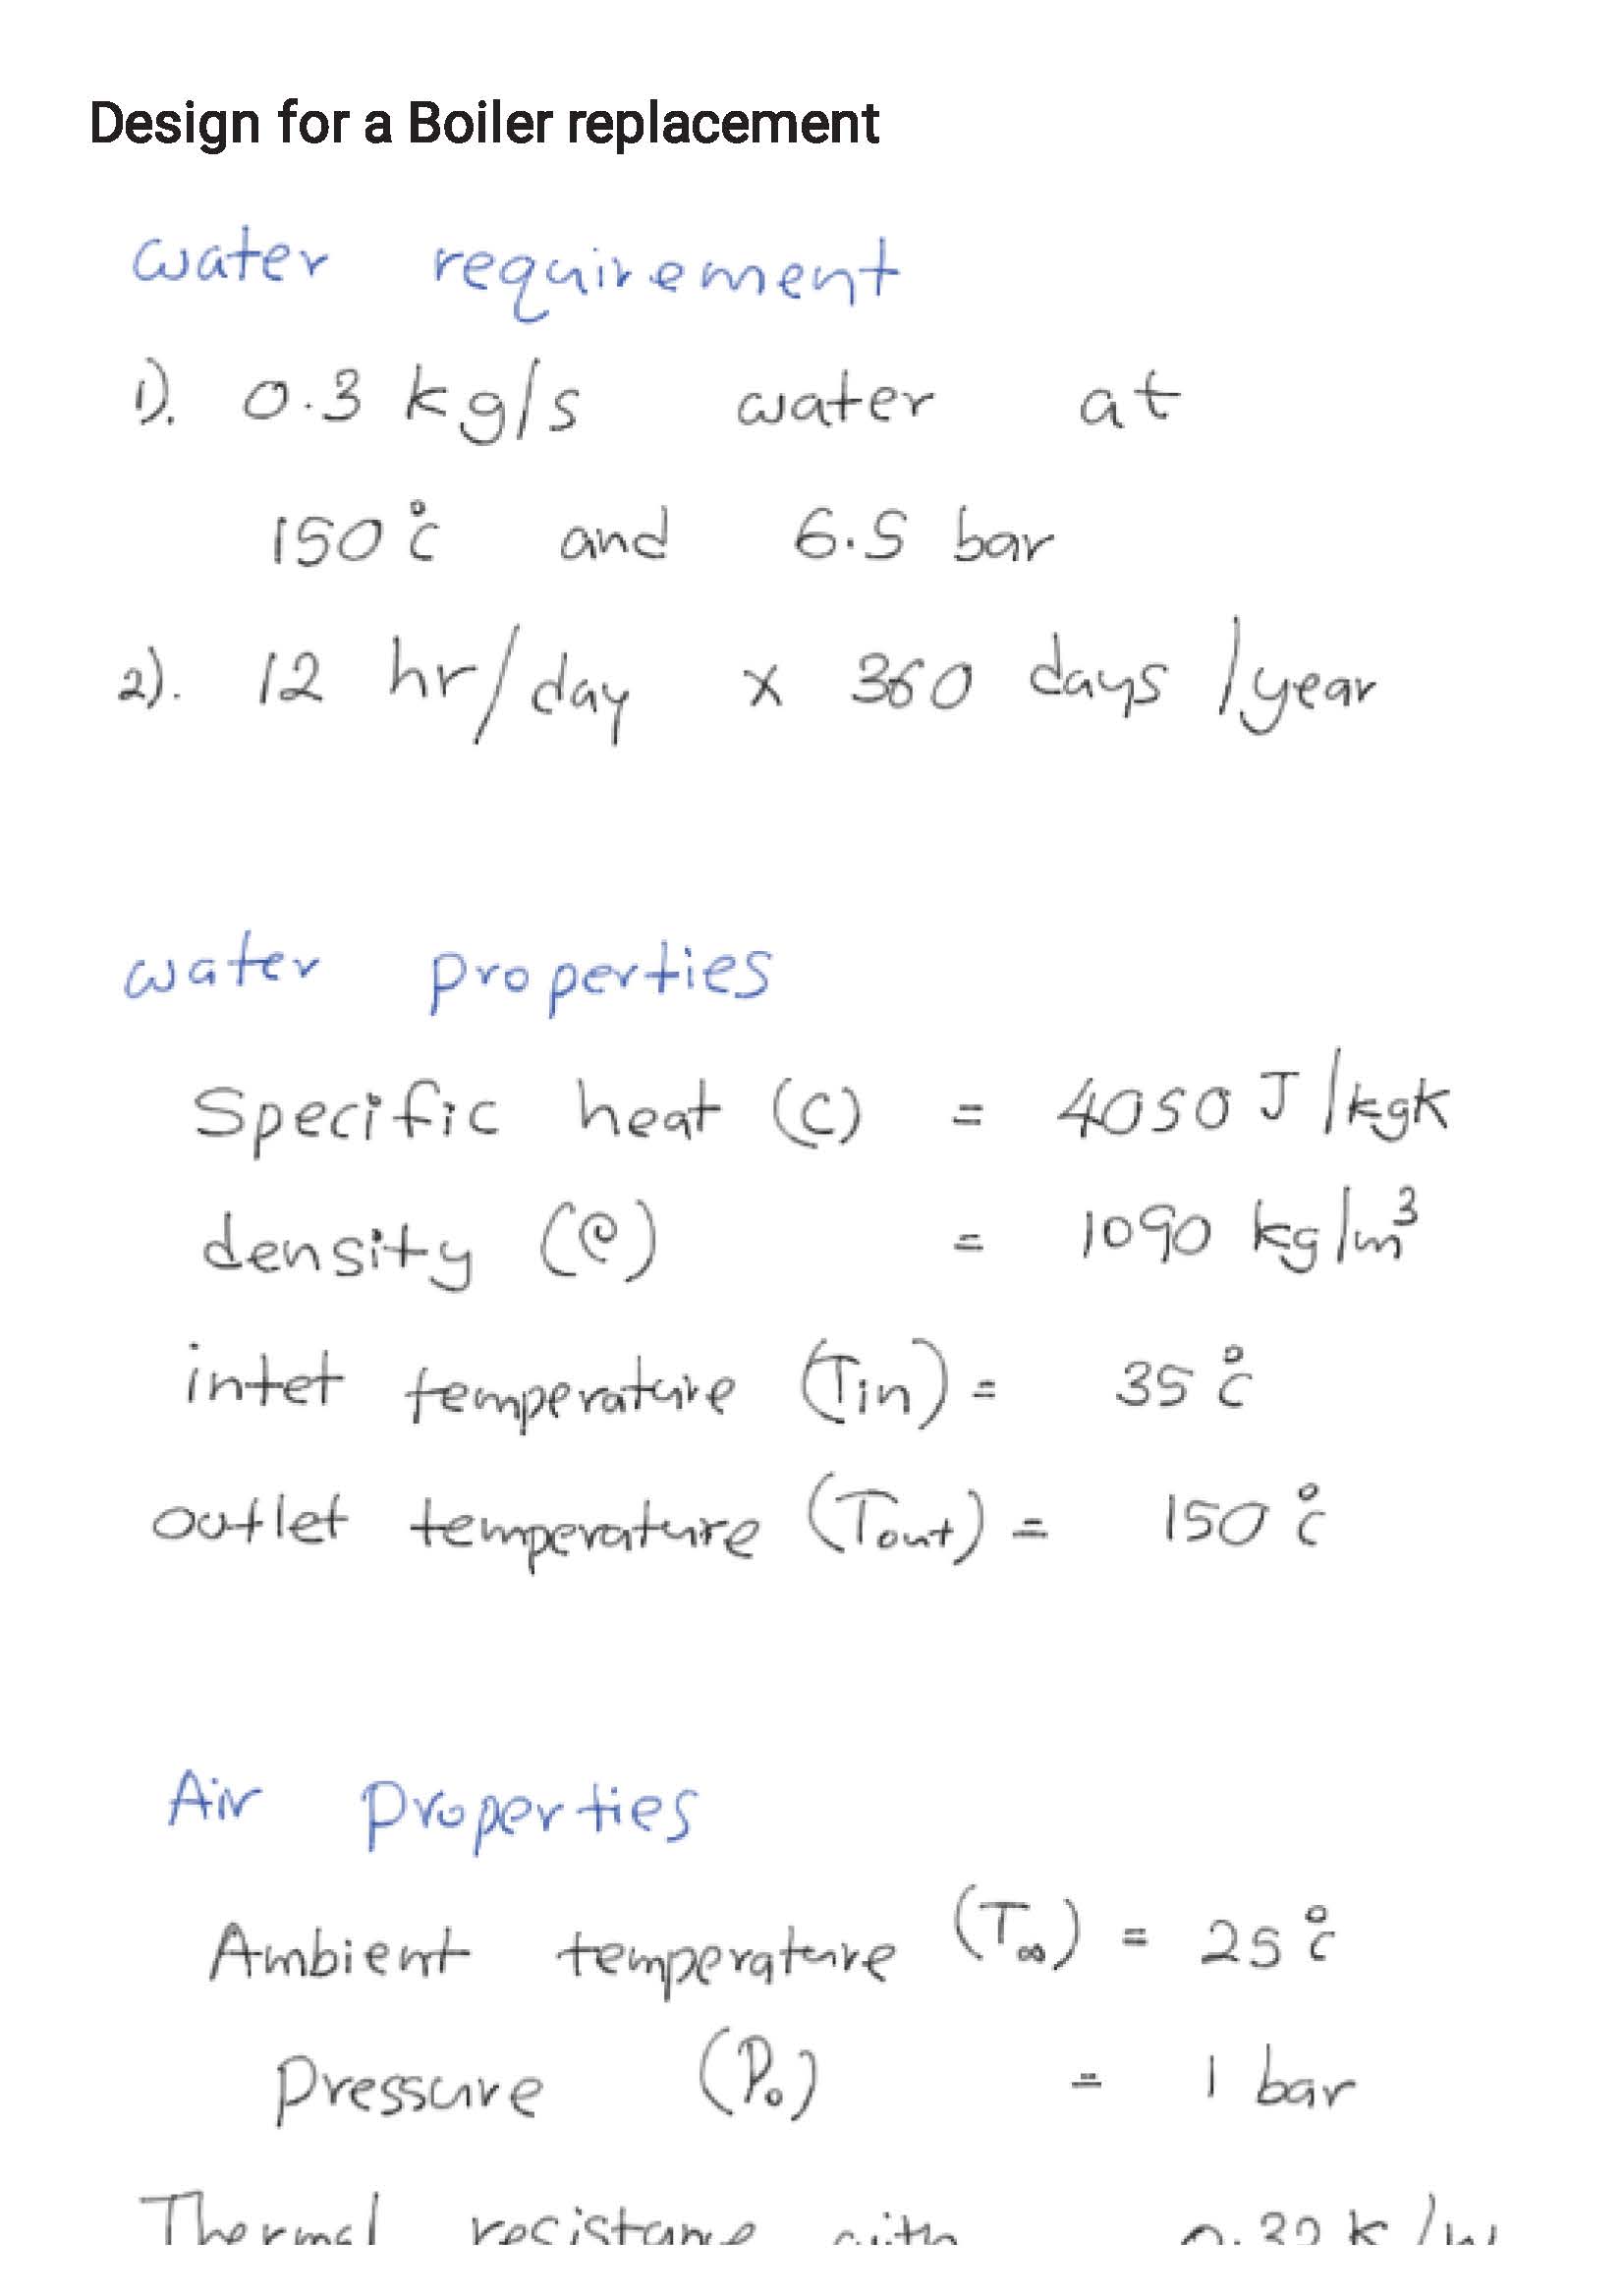 Design for a Boiler replacement
water requirement
1). 0.3 kg/s water at
150°c and 6.5 bar
2). 12 hr/day x 360 days /year
water properties
Specific heat (C) = 4050 J/kgK
density (ρ) = 1090 kg/m³
intet temperature (Tin) = 35°c
outlet temperature (Tout) = 150°c
Air properties
Ambient temperature (T∞) = 25°c
pressure (P₀) = 1 bar
Thermal resistance with